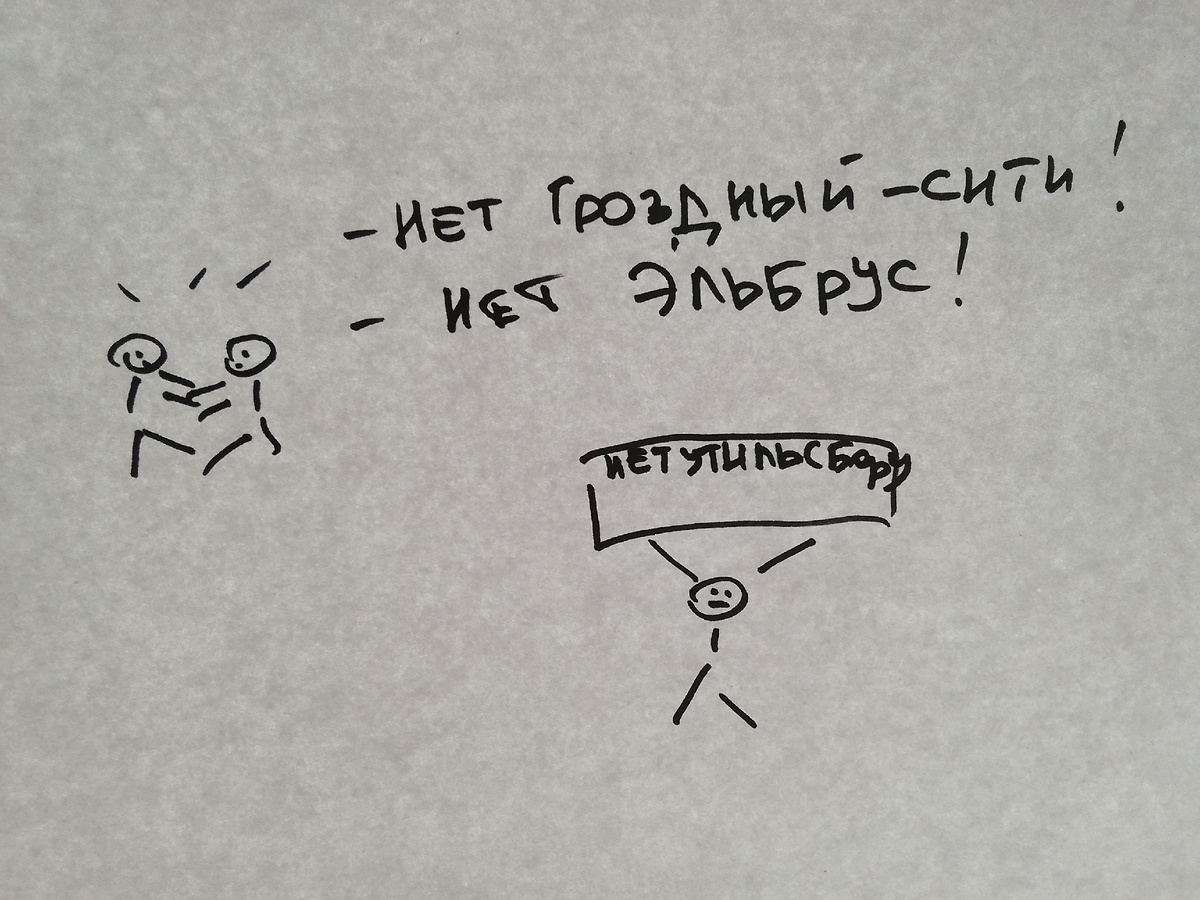 - НЕТ ГРОЗДНЫЙ-СИТИ!
- НЕТ ЭЛЬБРУС!
НЕТ УТИЛЬСБОРУ